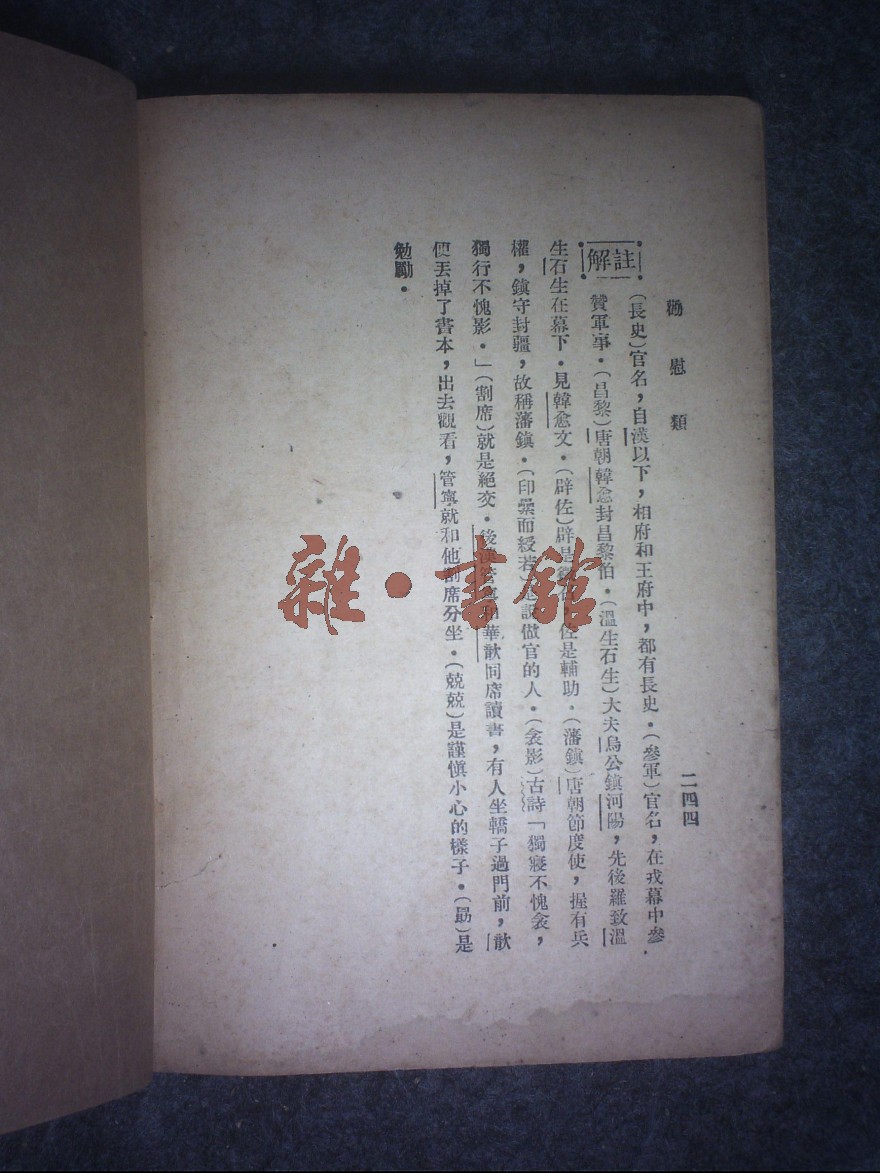 慰類
二四四
註解
(長史)官名,自漢以下,相府和王府中,都有長史.(參軍)官名,在戎幕中參
贊軍事.(昌黎)唐朝韓愈封昌黎伯.(溫生石生)大夫烏公鎮河陽,先後羅致溫
生石生在幕下.見韓愈文.(辟佐)辟是 佐是輔助.(藩鎮)唐朝節度使,握有兵
權,鎮守封疆,故稱藩鎮.(印纍而綬若) 做官的人.(衾影)古詩「獨寢不愧衾,
獨行不愧影.」(割席)就是絕交.後漢管寧和華歆同席讀書,有人坐轎子過門前,歆
便丟掉了書本,出去觀看,管寧就和他割席分坐.(兢兢)是謹愼小心的樣子.(勗)是
勉勵.
雜·書館